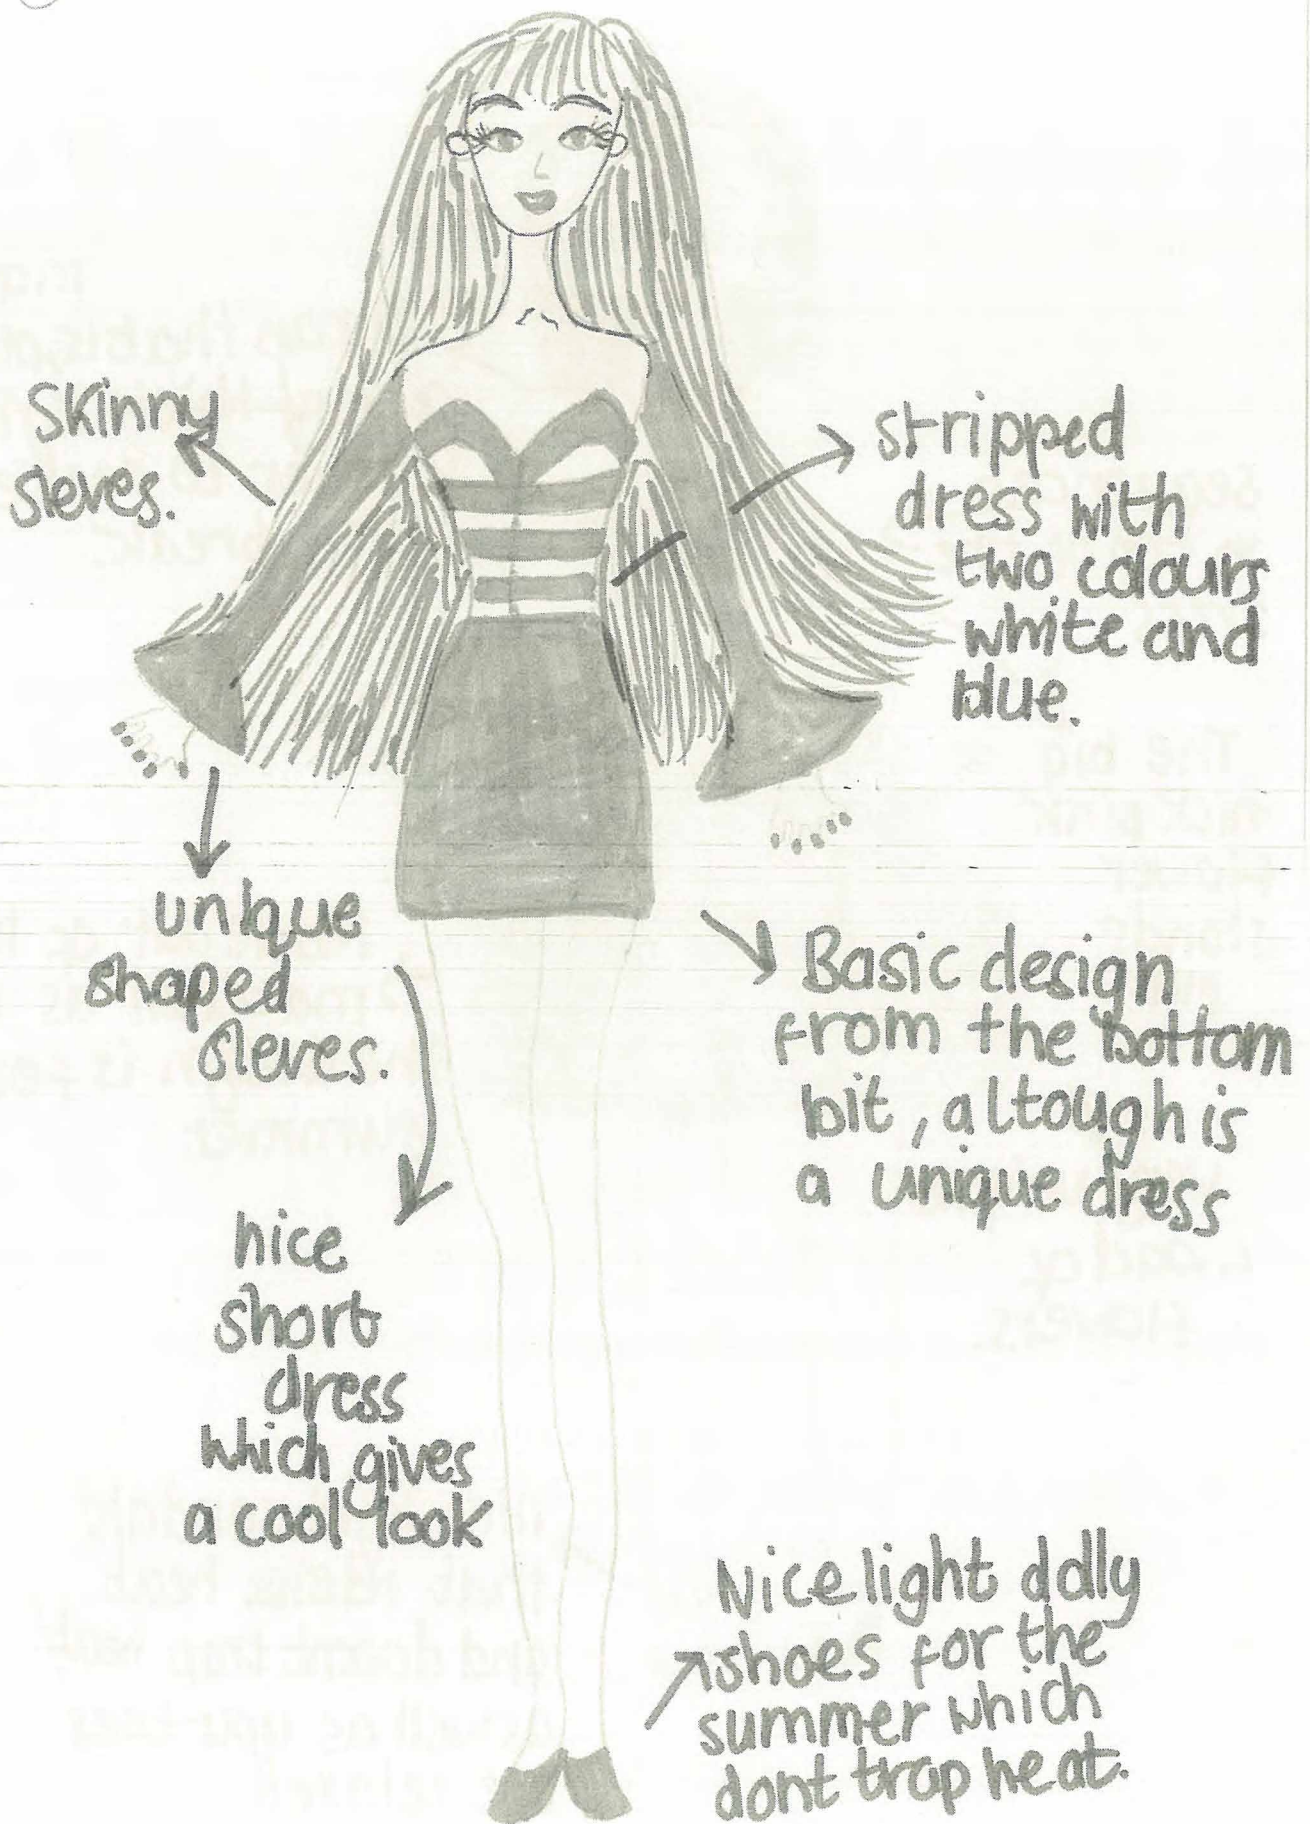 Skinny
sleves.
stripped
dress with
two colours
white and
blue.
unique
shaped
sleves.
Basic design
from the bottom
bit, altough is
a unique dress
nice
short
dress
which gives
a cool look
Nice light dolly
shoes for the
summer which
dont trap heat.